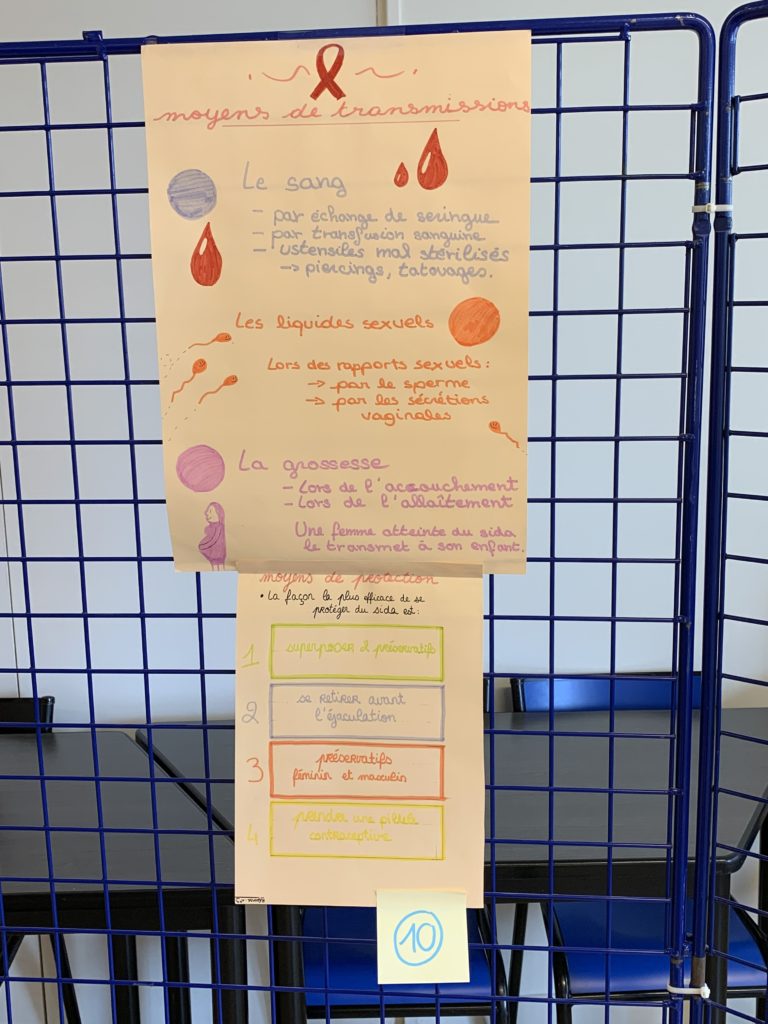 moyens de transmissions
Le sang
- par échange de seringue
- par transfusion sanguine
- ustensiles mal stérilisés
→ piercings, tatouages.
Les liquides sexuels
Lors des rapports sexuels :
→ par le sperme
→ par les sécrétions
vaginales
La grossesse
- Lors de l'accouchement
- Lors de l'allaîtement
Une femme atteinte du sida
le transmet à son enfant.
moyens de protection
• La façon la plus efficace de se
protéger du sida est :
1 superposer 2 préservatifs
2 se retirer avant
l'éjaculation
3 préservatifs
féminin et masculin
4 prendre une pillule
contraceptive
10